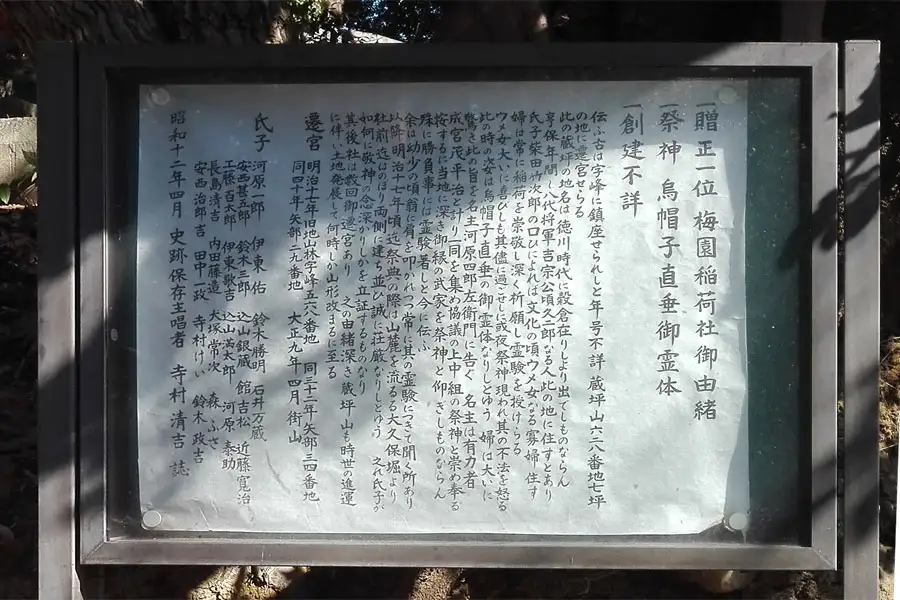 一贈 正一位 梅園稲荷社御由緒
一祭 神 烏帽子直垂御霊体
一創 建不詳
伝ふ古は字峰に鎮座せられしと年号不詳 蔵坪山六二八番地七坪
の地に遷宮せらる
此の蔵坪の地名は徳川時代に穀倉在りしより出でしものならん
享保年間し八代将軍吉宗公頃久二郎なる人此の地に住すとあり
氏子柴田竹次郎の口ひによれば文化の頃ウメ女なる寡婦住す
婦は常に稲荷を崇敬し深く祈願し霊験を授けらる
ウメ女大いに喜びしも其儘に過ごせしに或夜祭神現われ其の不法を怒る
此の時の姿は烏帽子直垂の御霊体なりしとゆう 婦は大いに
驚き此の旨を名主河原四郎左衛門に告く 名主は有力者
成官茂平治と計り一同を集め協議の上中組の祭神と崇め奉る
按ずるに当地に深き御縁の武家を祭神と仰ぎしものならん
殊に勝負事には霊験著しと今に伝ふ
余は幼少の頃翁に肩を叩かれつつ常に其の霊験につきて聞く所あり
以降明治十七年頃迄祭典の際は山麓を流るる大久保堀より
社前迄はのぼり両側に建ち並び誠に荘厳なりしとゆう 之れ氏子が
如何に敬神の念深かりしかを立証するものなり
其後社は数回御遷宮あり 之の由緒深き蔵坪山も時世の進運
に伴い土地発展して何時しか山形改まるに至る
遷宮 明治七年旧地山林字峰五六八番地 同三十二年矢部三四番地
同四十年矢部二九番地 大正九年四月街山
氏子 河原一郎 伊東 佑 鈴木勝明 石井万蔵
安西甚五郎 鈴木三郎 込山銀蔵 館 吉松 近藤寛治
工藤百太郎 伊東歌吉 込山満太郎 河原 泰助
長島清吉 内田藤造 大塚常次 森 ふさ
安西治郎吉 田中一政 寺村けい 鈴木 政吉
昭和十二年四月 史跡保存主唱者 寺村 清吉 誌